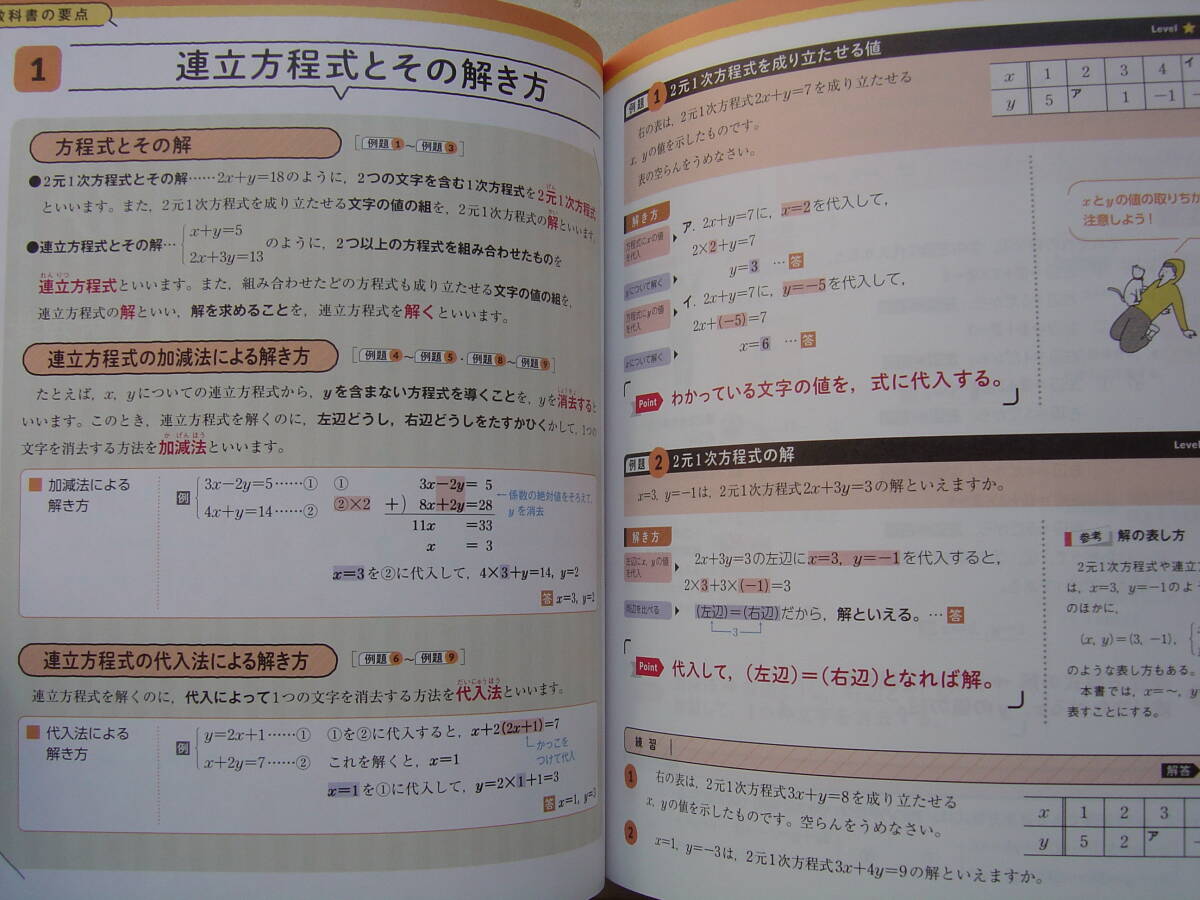 教科書の要点
1 連立方程式とその解き方
方程式とその解 [例題1～例題3]
●2元1次方程式とその解……2x+y=18のように，2つの文字を含む1次方程式を2元1次方程式
といいます。また，2元1次方程式を成り立たせる文字の値の組を，2元1次方程式の解といいます。
●連立方程式とその解…
x+y=5
2x+3y=13
のように，2つ以上の方程式を組み合わせたものを
連立方程式といいます。また，組み合わせたどの方程式も成り立たせる文字の値の組を，
連立方程式の解といい，解を求めることを，連立方程式を解くといいます。
連立方程式の加減法による解き方 [例題4～例題5・例題8～例題9]
たとえば，x，yについての連立方程式から，yを含まない方程式を導くことを，yを消去すると
いいます。このとき，連立方程式を解くのに，左辺どうし，右辺どうしをたすかひくかして，1つの
文字を消去する方法を加減法といいます。
■加減法による
解き方
例
3x−2y=5……①
4x+y=14……②
① 3x−2y= 5
②×2 +) 8x+2y=28
11x =33
x = 3
係数の絶対値をそろえて，
yを消去
x=3を②に代入して，4×3+y=14, y=2
答 x=3, y=2
連立方程式の代入法による解き方 [例題6～例題9]
連立方程式を解くのに，代入によって1つの文字を消去する方法を代入法といいます。
■代入法による
解き方
例
y=2x+1……①
x+2y=7……②
①を②に代入すると，x+2(2x+1)=7
かっこを
つけて代入
これを解くと，x=1
x=1を①に代入して，y=2×1+1=3
答 x=1, y=3
Level ★
例題1 2元1次方程式を成り立たせる値
右の表は，2元1次方程式2x+y=7を成り立たせる
x，yの値を示したものです。
表の空らんをうめなさい。
x 1 2 3 4 イ
y 5 ア 1 −1
解き方
方程式にxの値
を代入
ア．2x+y=7に，x=2を代入して，
2×2+y=7
yについて解く
y=3 …答
方程式にyの値
を代入
イ．2x+y=7に，y=−5を代入して，
2x+(−5)=7
xについて解く
x=6 …答
xとyの値の取りちが
注意しよう！
Point わかっている文字の値を，式に代入する。
Level
例題2 2元1次方程式の解
x=3, y=−1は，2元1次方程式2x+3y=3の解といえますか。
解き方
左辺にx, yの値
を代入
2x+3y=3の左辺にx=3, y=−1を代入すると，
2×3+3×(−1)=3
両辺を比べる
(左辺)=(右辺)だから，解といえる。…答
3
Point 代入して，(左辺)=(右辺)となれば解。
参考 解の表し方
2元1次方程式や連立
は，x=3, y=−1のよう
のほかに，
(x, y)=(3, −1),
のような表し方もある。
本書では，x=～, y
表すことにする。
練習
解答
1 右の表は，2元1次方程式3x+y=8を成り立たせる
x，yの値を示したものです。空らんをうめなさい。
x 1 2 3
y 5 2 ア
2 x=1, y=−3は，2元1次方程式3x+4y=9の解といえますか。